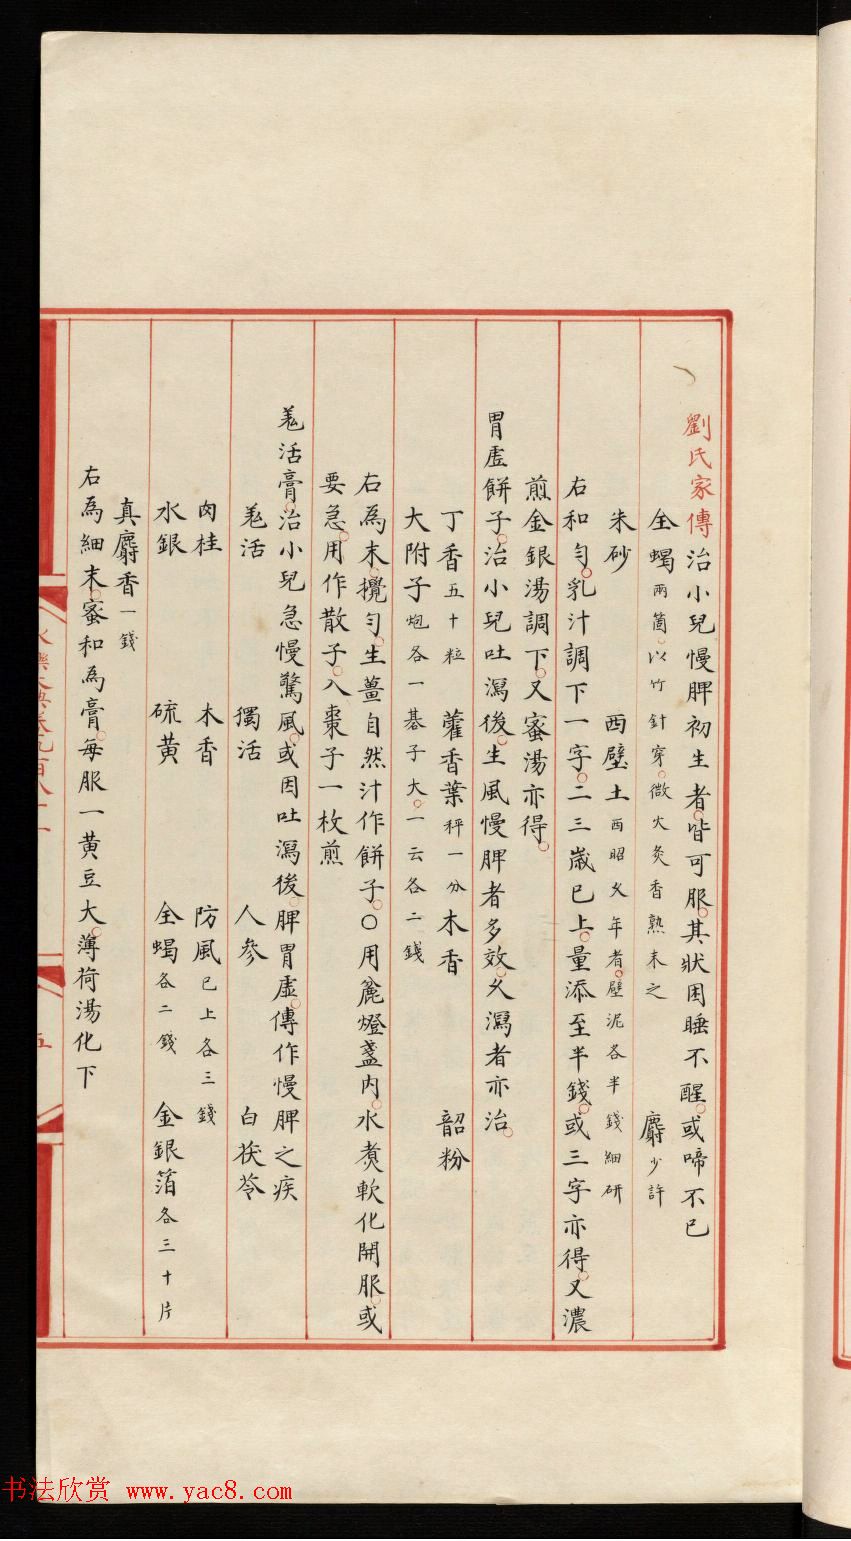 劉氏家傳治小兒慢脾初生者皆可服其狀困睡不醒或啼不已
全蝎兩箇以竹針穿微火炙香熟末之 麝少許
朱砂 西壁土西照久年者壁泥各半錢細研
右和勻乳汁調下一字二三歲已上量添至半錢或三字亦得又濃
煎金銀湯調下又蜜湯亦得
胃虛餅子治小兒吐瀉後生風慢脾者多效久瀉者亦治
丁香五十粒 藿香葉秤一分 木香 韶粉
大附子炮各一碁子大一云各二錢
右為末攪勻生薑自然汁作餅子〇用麄燈盞內水煑軟化開服或
要急用作散子入棗子一枚煎
羗活膏治小兒急慢驚風或因吐瀉後脾胃虛傳作慢脾之疾
羗活 獨活 人參 白茯苓
肉桂 木香 防風已上各三錢
水銀 硫黄 全蝎各二錢 金銀箔各三十片
真麝香一錢
右為細末蜜和為膏每服一黄豆大薄荷湯化下
五
书法欣赏 www.yac8.com